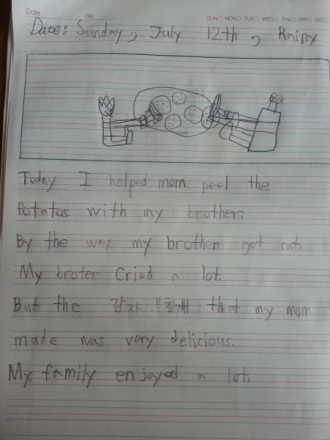 Date No.
SUN MON TUE WED THU FRI SAT
Date: Sunday, July 12th, Rainy
Today I helped mom peel the
Potatos with my brother.
By the way my brother got cut.
My broter Cried a lot.
But the 감자 부침개 that my mom
made was very delicious.
My family enjoyed a lot.